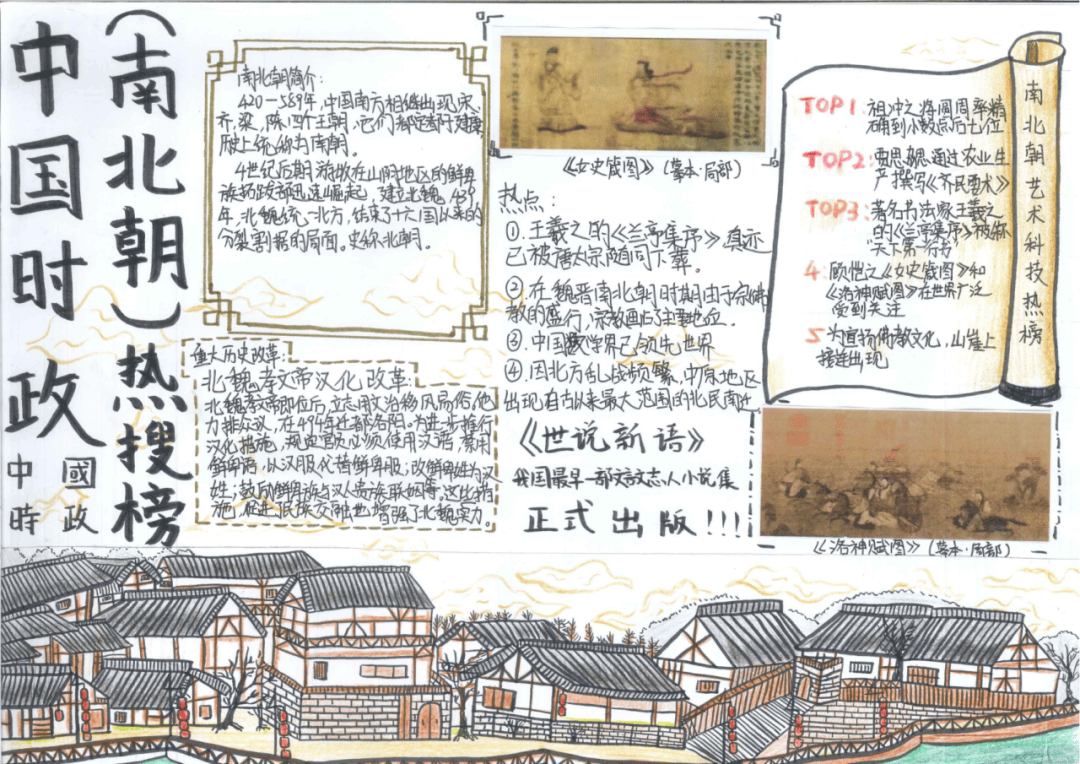 中国时政
中國
時政
(南北朝)热搜榜
南北朝简介:
420—589年,中国南方相继出现宋、
齐、梁、陈四个王朝,它们都定都于建康
历史上统称为南朝。
4世纪后期,游牧在山阴地区的鲜卑
族拓跋部迅速崛起,建立北魏,439
年,北魏统一北方,结束了十六国以来的
分裂割据的局面。史称北朝。
重大历史改革:
北魏孝文帝汉化改革:
北魏孝文帝即位后,立志用文治移风易俗。他
力排众议,在494年迁都洛阳。为进一步推行
汉化措施,规定官员必须使用汉语,禁用
鲜卑语,以汉服代替鲜卑服;改鲜卑姓为汉
姓;鼓励鲜卑族与汉人贵族联姻等,这些措
施,促进民族交融也增强了北魏实力。
《女史箴图》(摹本·局部)
热点:
①.王羲之的《兰亭集序》真迹
已被唐太宗随同下葬。
②.在魏晋南北朝时期由于宗佛
教的盛行,宗教画占了主要地位.
③.中国数学界已领先世界
④.因北方乱战频繁,中原地区
出现自古以来最大范围的北民南迁
《世说新语》
我国最早一部文言志人小说集
正式出版!!!
南北朝艺术科技热榜
TOP1:祖冲之将圆周率精
确到小数点后七位
TOP2:贾思勰通过农业生
产撰写《齐民要术》
TOP3:著名书法家王羲之
的《兰亭集序》被称
"天下第一行书
4.顾恺之《女史箴图》和
《洛神赋图》在世界广泛
受到关注
5为宣扬佛教文化,山崖上
接连出现
《洛神赋图》(摹本·局部)